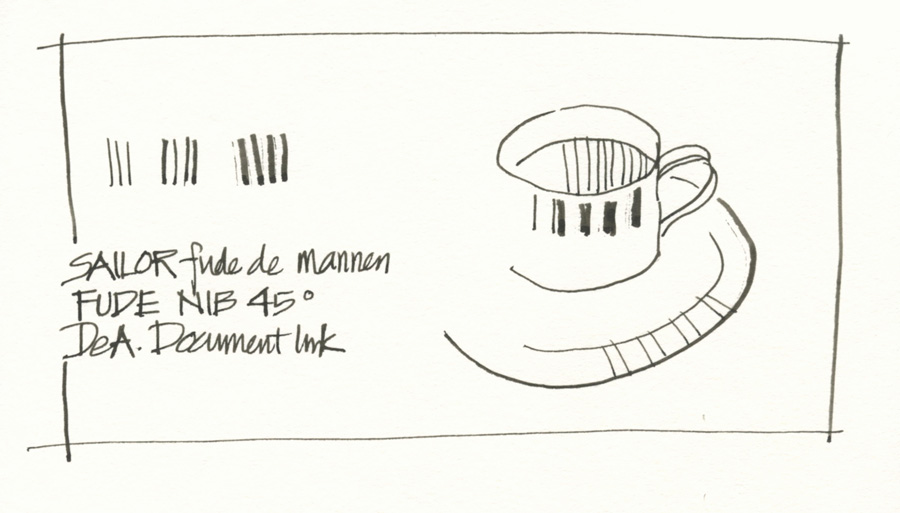 SAILOR fude de mannen
FUDE NIB 45°
DeA. Document Ink